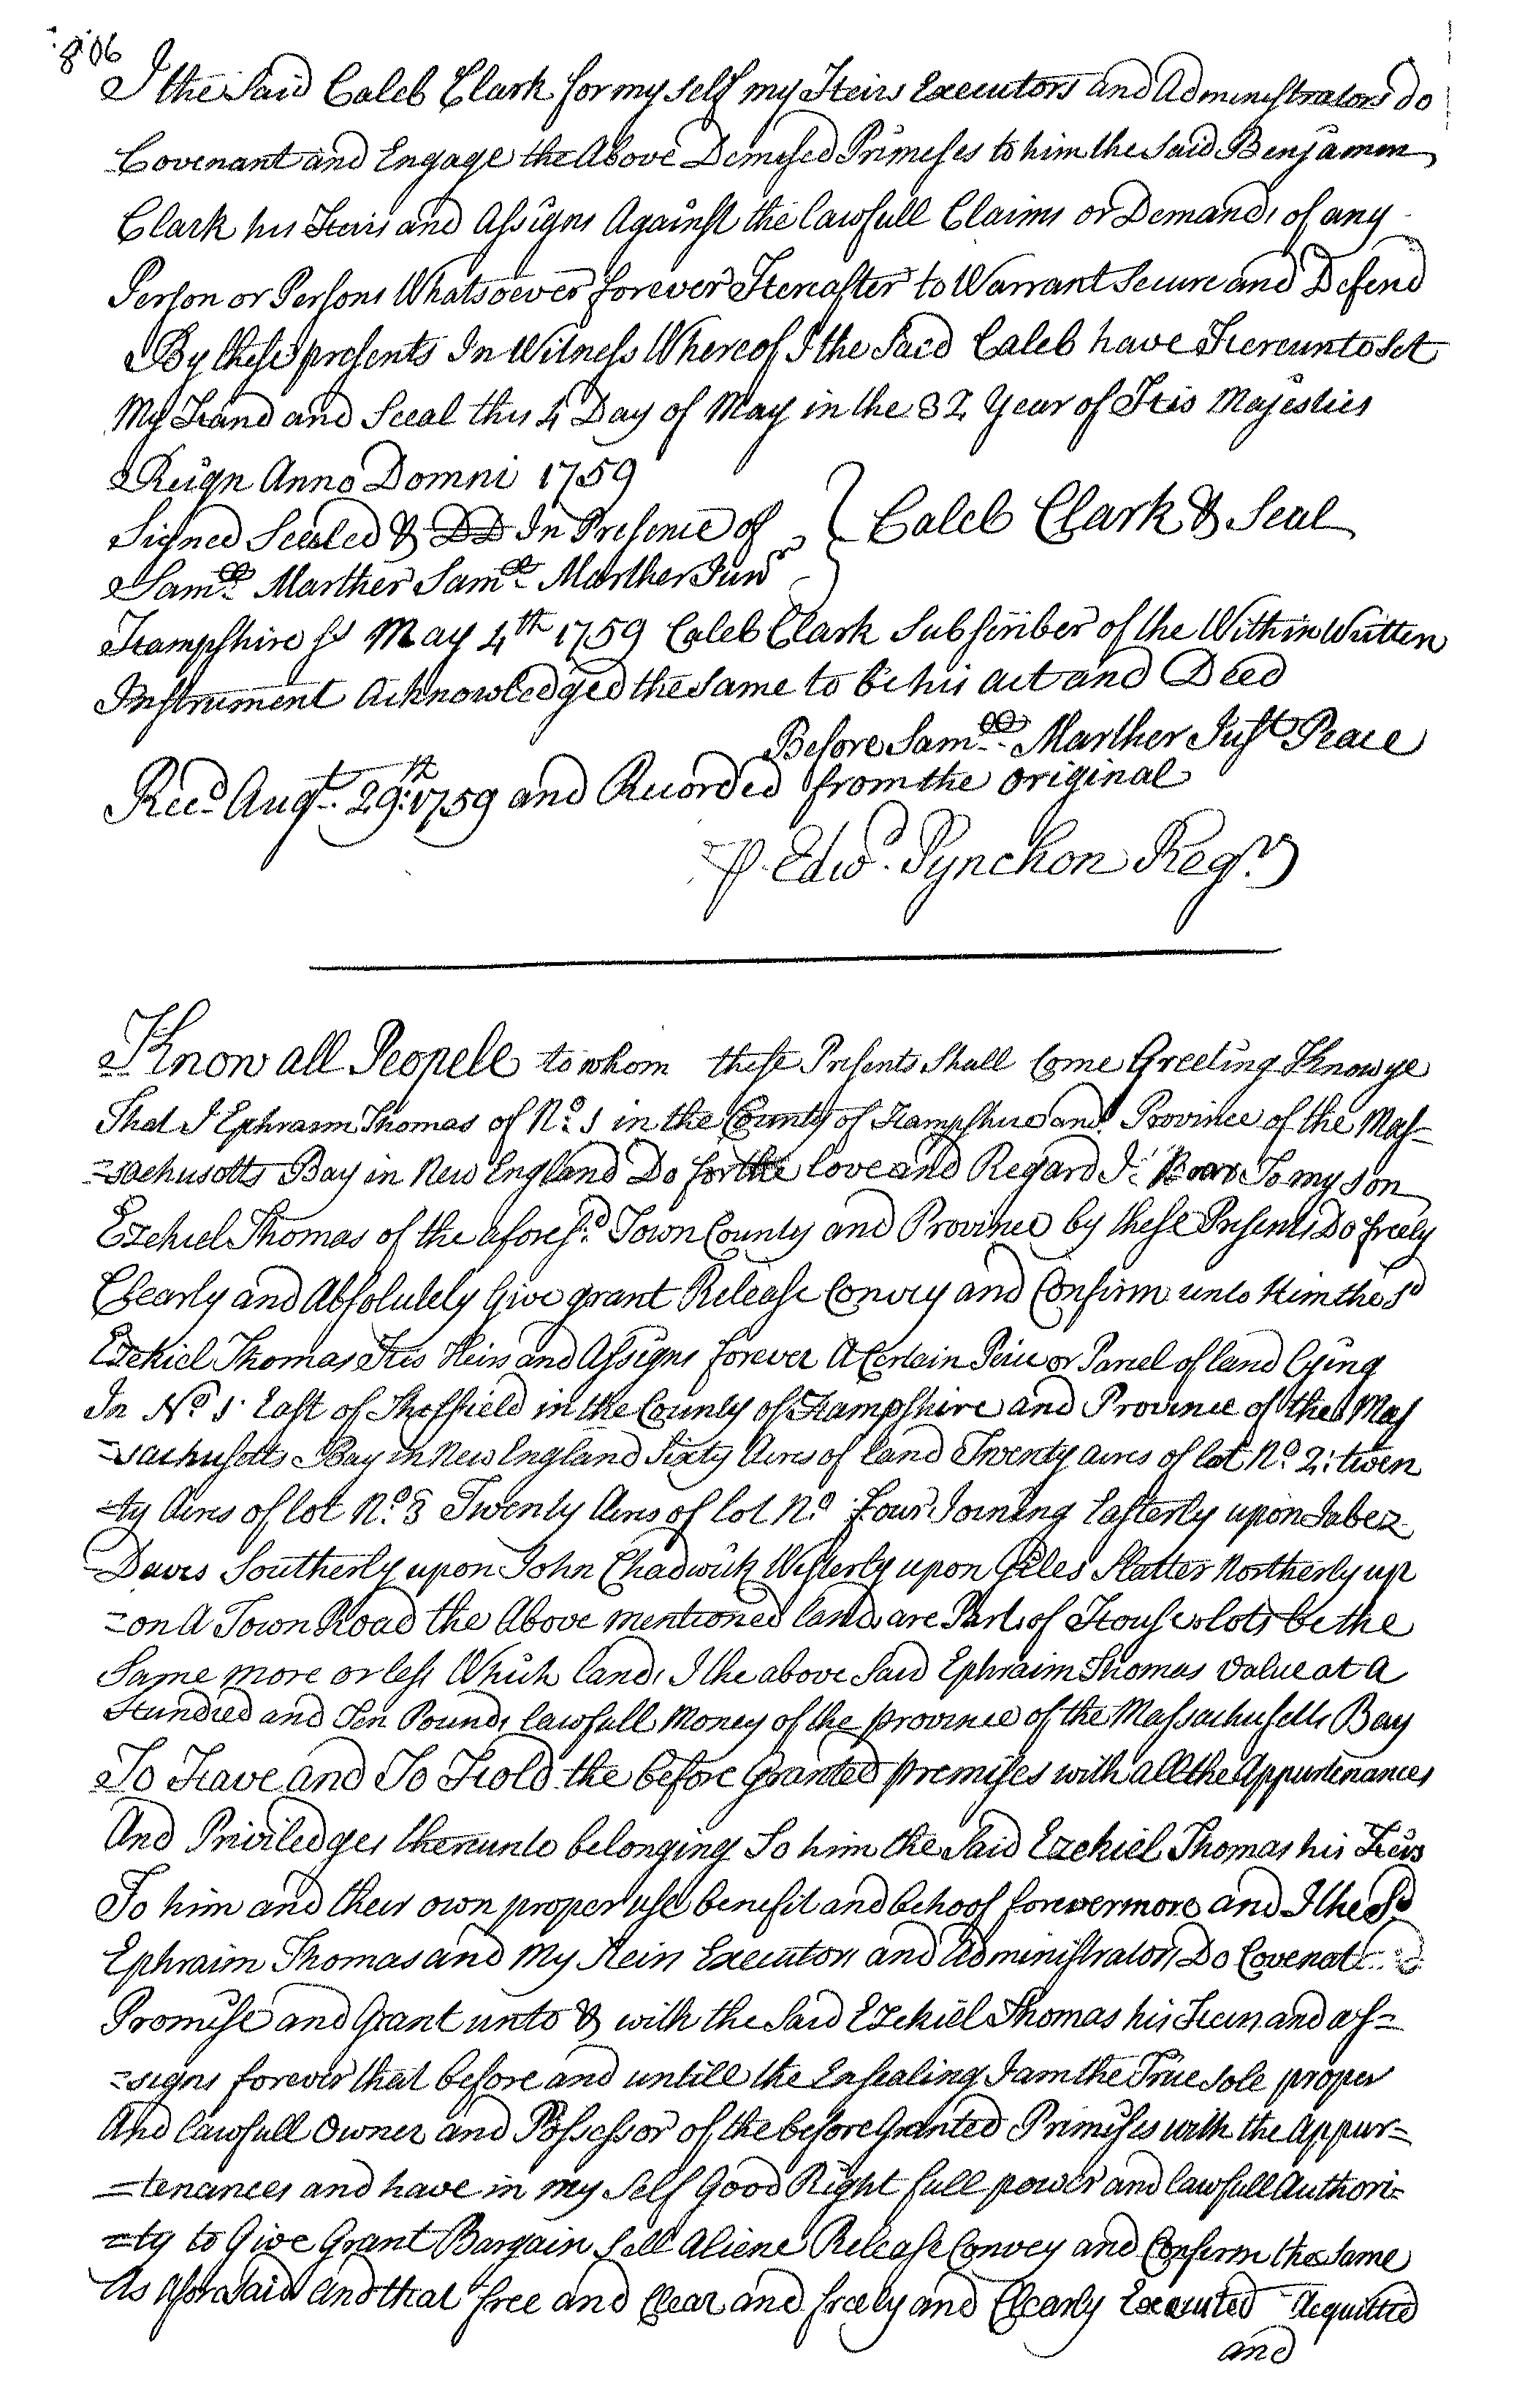 806
I the Said Caleb Clark for my self my Heirs Executors and Administrators do
Covenant and Engage the Above Demised Primeses to him the Said Benjamen
Clark his Heirs and Assigns Against the lawfull Claims or Demands of any
Person or Persons Whatsoever forever Hereafter to Warrant Secure and Defend
By these presents In Witness Whereof I the Said Caleb have Hereunto Set
My Hand and Seeal this 4 Day of May in the 32 Year of His Majesties
Reign Anno Domni 1759
Signed Sealed & DD In Presence of } Caleb Clark & Seal
Samll Marther Samll Marther Junr
Hampshire ss May 4th 1759 Caleb Clark Subscriber of the Within Written
Instrument Acknowledged the Same to be his act and Deed
Before Samll Marther Just Peace
Recd Augt 29th 1759 and Recorded from the original
P. Edwd Pynchon Regr
Know all Peopell to whom these Presents Shall Come Greeting Know ye
That I Ephraim Thomas of No. 1 in the County of Hampshire and Province of the Mas-
=sachusetts Bay in New England Do for the love and Regard I Bear To my son
Ezekiel Thomas of the aforesd Town County and Province by these Presents Do freely
Clearly and Absolutely Give grant Release Convey and Confirm unto Him the Sd
Ezekiel Thomas His Heirs and Assigns forever A Certain Peice or Parcel of land lying
In No 1 East of Sheffield in the County of Hampshire and Province of the Mas
=sachusetts Bay in New England Sixty Acres of land Twenty acres of lot No. 2: twen
=ty Acres of lot No. 3 Twenty Acres of lot No Four Joining Easterly upon Jabez
Daves Southerly upon John Chadwick Westerly upon Giles Slatter Northerly up
=on A Town Road the Above mentioned lands are Part of House lots be the
Same more or less Which lands I the above Said Ephraim Thomas value at a
Hundred and Ten Pounds lawfull Money of the province of the Massachusetts Bay
To Have and To Hold the before Granted premises with all the Appurtenances
And Priviledges thereunto belonging To him the Said Ezekiel Thomas his Heirs
To him and their own proper use benefit and behoof forevermore and I the Sd
Ephraim Thomas and My Heirs Executors and Administrators Do Covenat
Promise and Grant unto & with the Said Ezekiel Thomas his Heirs and as=
=signs forever that before and untill the Ensealing I am the True Sole proper
And lawfull Owner and Possessor of the before Granted Primises with the Appur=
=tenances and have in my Self Good Right full power and lawfull Authori=
=ty to Give Grant Bargain Sell Aliene Release Convey and Confirm the Same
As Aforesaid And that free and Clear and freely and Clearly Executed Acquitted
and